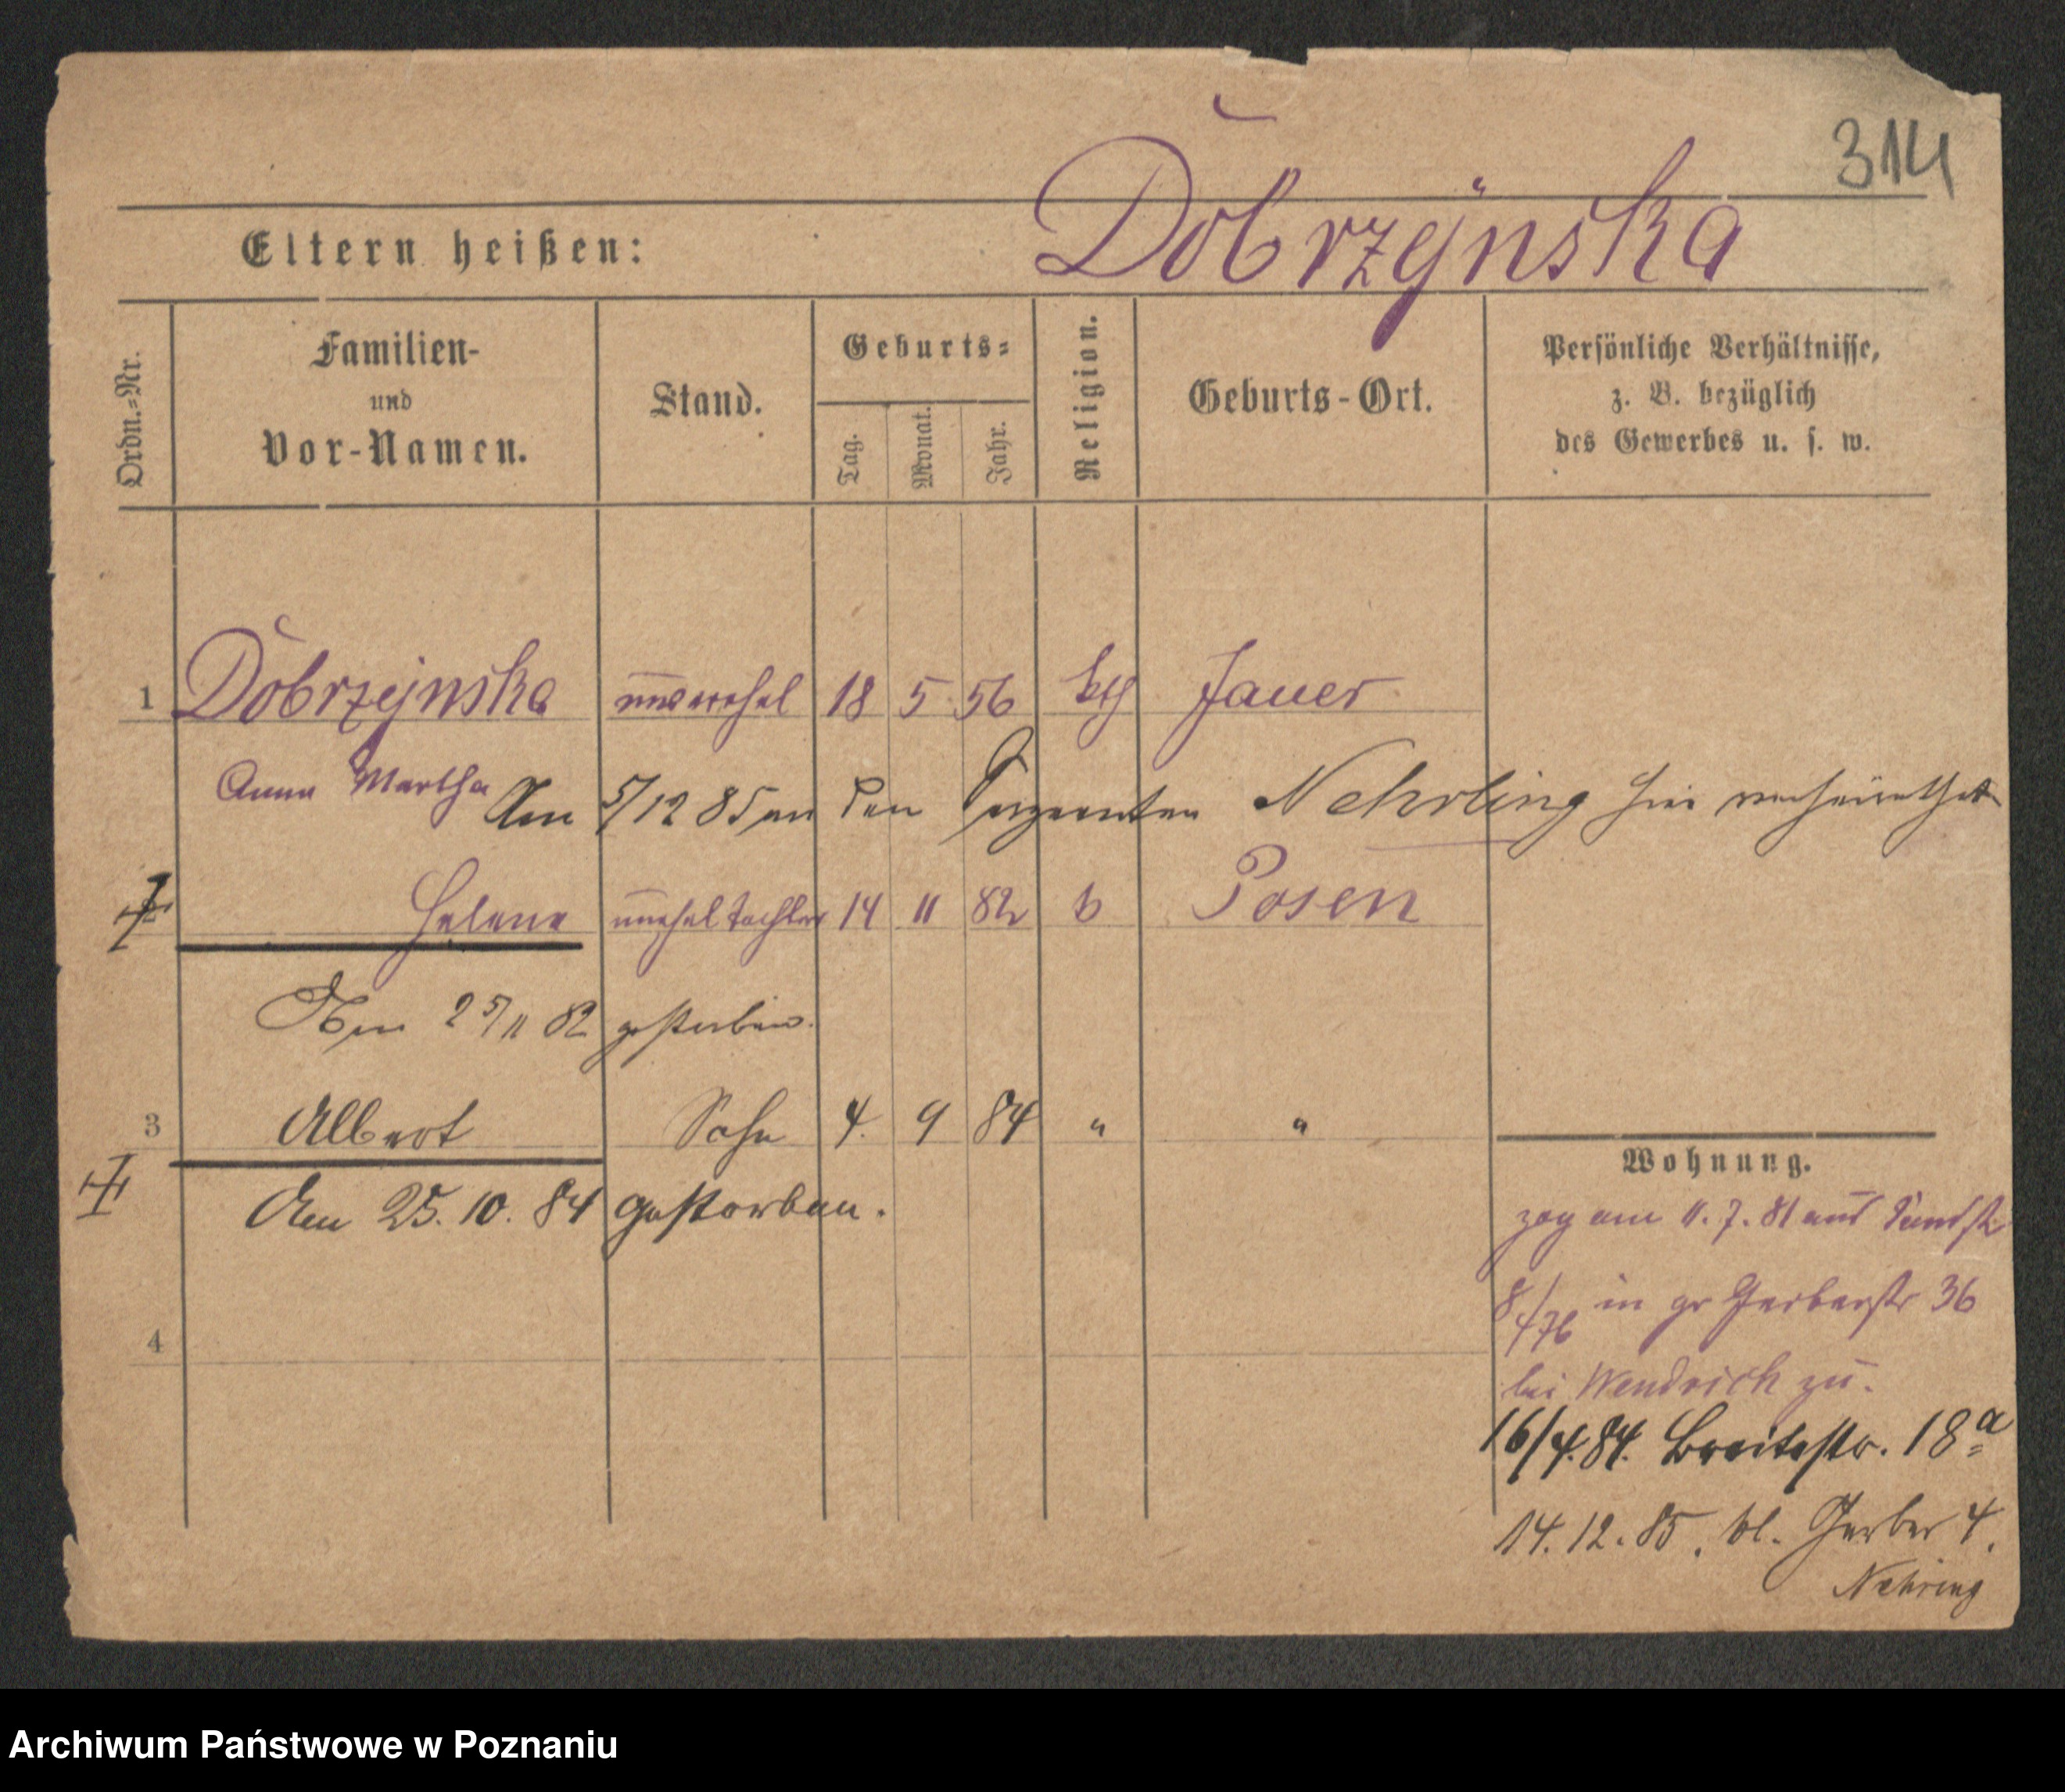 314
Eltern heißen: Dobrzÿnska
Ordn.=Nr.
Familien-
und
Vor-Namen.
Stand.
Geburts=
Tag.
Monat.
Jahr.
Religion.
Geburts-Ort.
Persönliche Verhältnisse,
z. B. bezüglich
des Gewerbes u. s. w.
1 Dobrzejnska unverehel 18 5 56 kth Jauer
Anna Martha Am 5/12 85 an den Sergeanten Nehrling hier verheirathet
Helene unehel Tochter 14 11 82 k Posen
Am 25/11 82 gestorben.
3 Albert Sohn 4. 9 84 " "
Am 25. 10. 84 gestorben.
4
Wohnung.
zog am 11. 7. 81 aus
8/476 in gr Gerberstr 36
bei Wendrich zu.
16/4.84. Breitestr. 18a
14. 12. 85. kl. Gerber 4.
Nehring
Archiwum Państwowe w Poznaniu